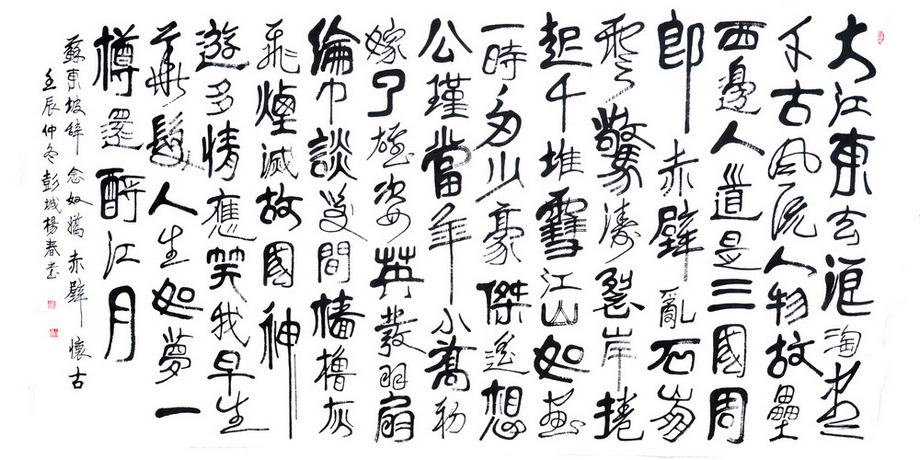 大江東去浪淘盡
千古風流人物故壘
西邊人道是三國周
郎赤壁亂石崩
雲驚濤裂岸捲
起千堆雪江山如畫
一時多少豪傑遙想
公瑾當年小喬初
嫁了雄姿英發羽扇
綸巾談笑間檣櫓灰
飛煙滅故國神
遊多情應笑我早生
華髮人生如夢一
樽還酹江月
蘇東坡辭念奴嬌赤壁懷古
壬辰仲冬彭城楊春書